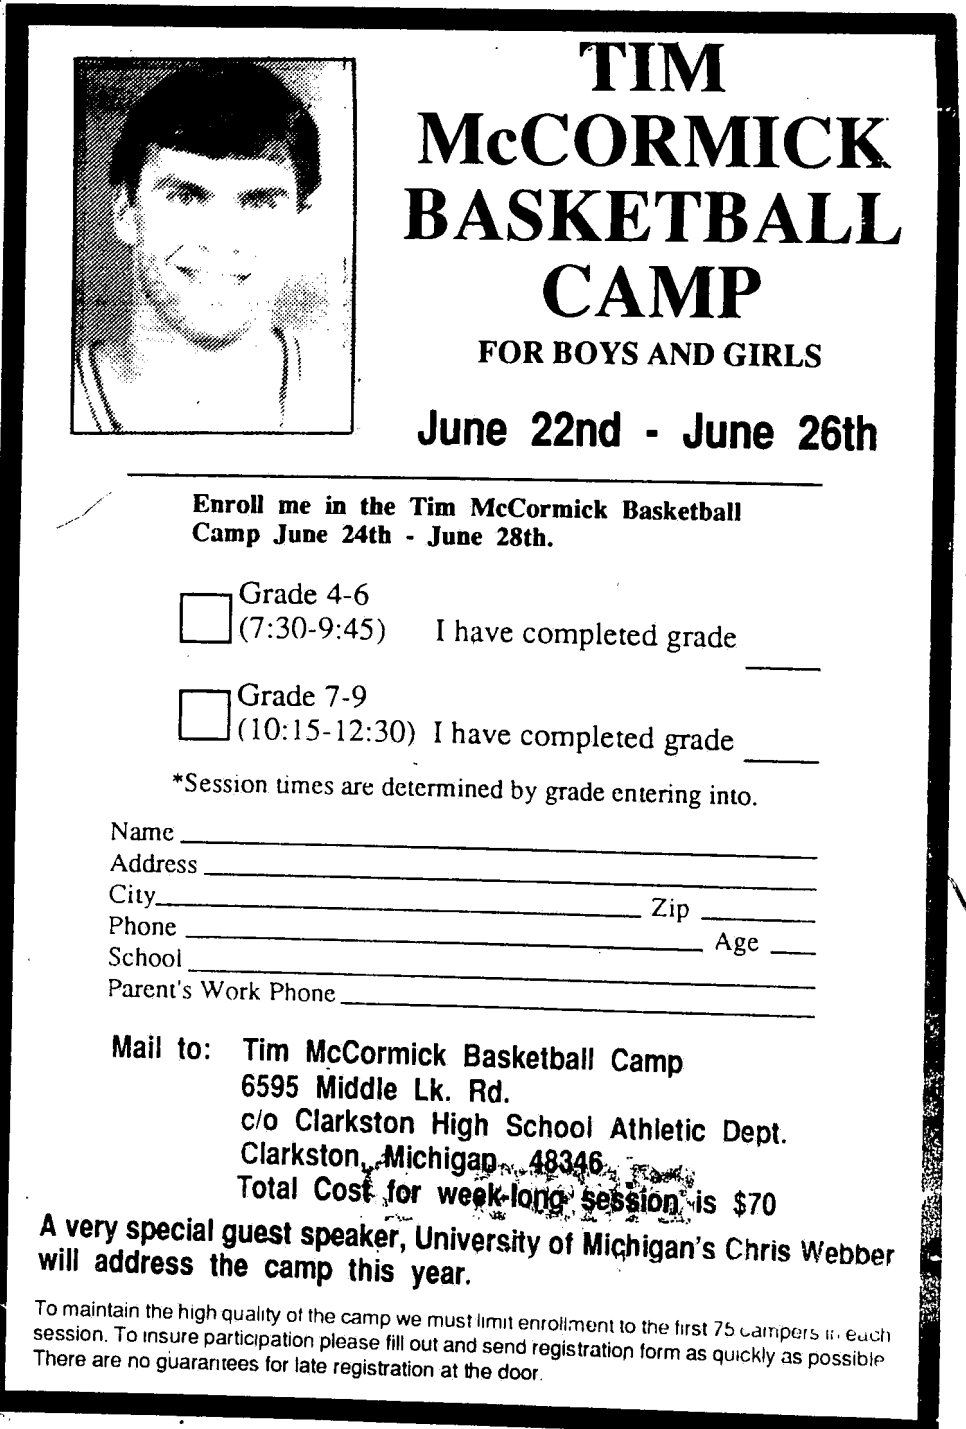 TIM
McCORMICK
BASKETBALL
CAMP
FOR BOYS AND GIRLS
June 22nd - June 26th
Enroll me in the Tim McCormick Basketball
Camp June 24th - June 28th.
Grade 4-6
(7:30-9:45) I have completed grade
Grade 7-9
(10:15-12:30) I have completed grade
*Session times are determined by grade entering into.
Name
Address
City Zip
Phone Age
School
Parent's Work Phone
Mail to: Tim McCormick Basketball Camp
6595 Middle Lk. Rd.
c/o Clarkston High School Athletic Dept.
Clarkston, Michigan 48346
Total Cost for week-long session is $70
A very special guest speaker, University of Michigan's Chris Webber
will address the camp this year.
To maintain the high quality of the camp we must limit enrollment to the first 75 campers in each
session. To insure participation please fill out and send registration form as quickly as possible
There are no guarantees for late registration at the door.